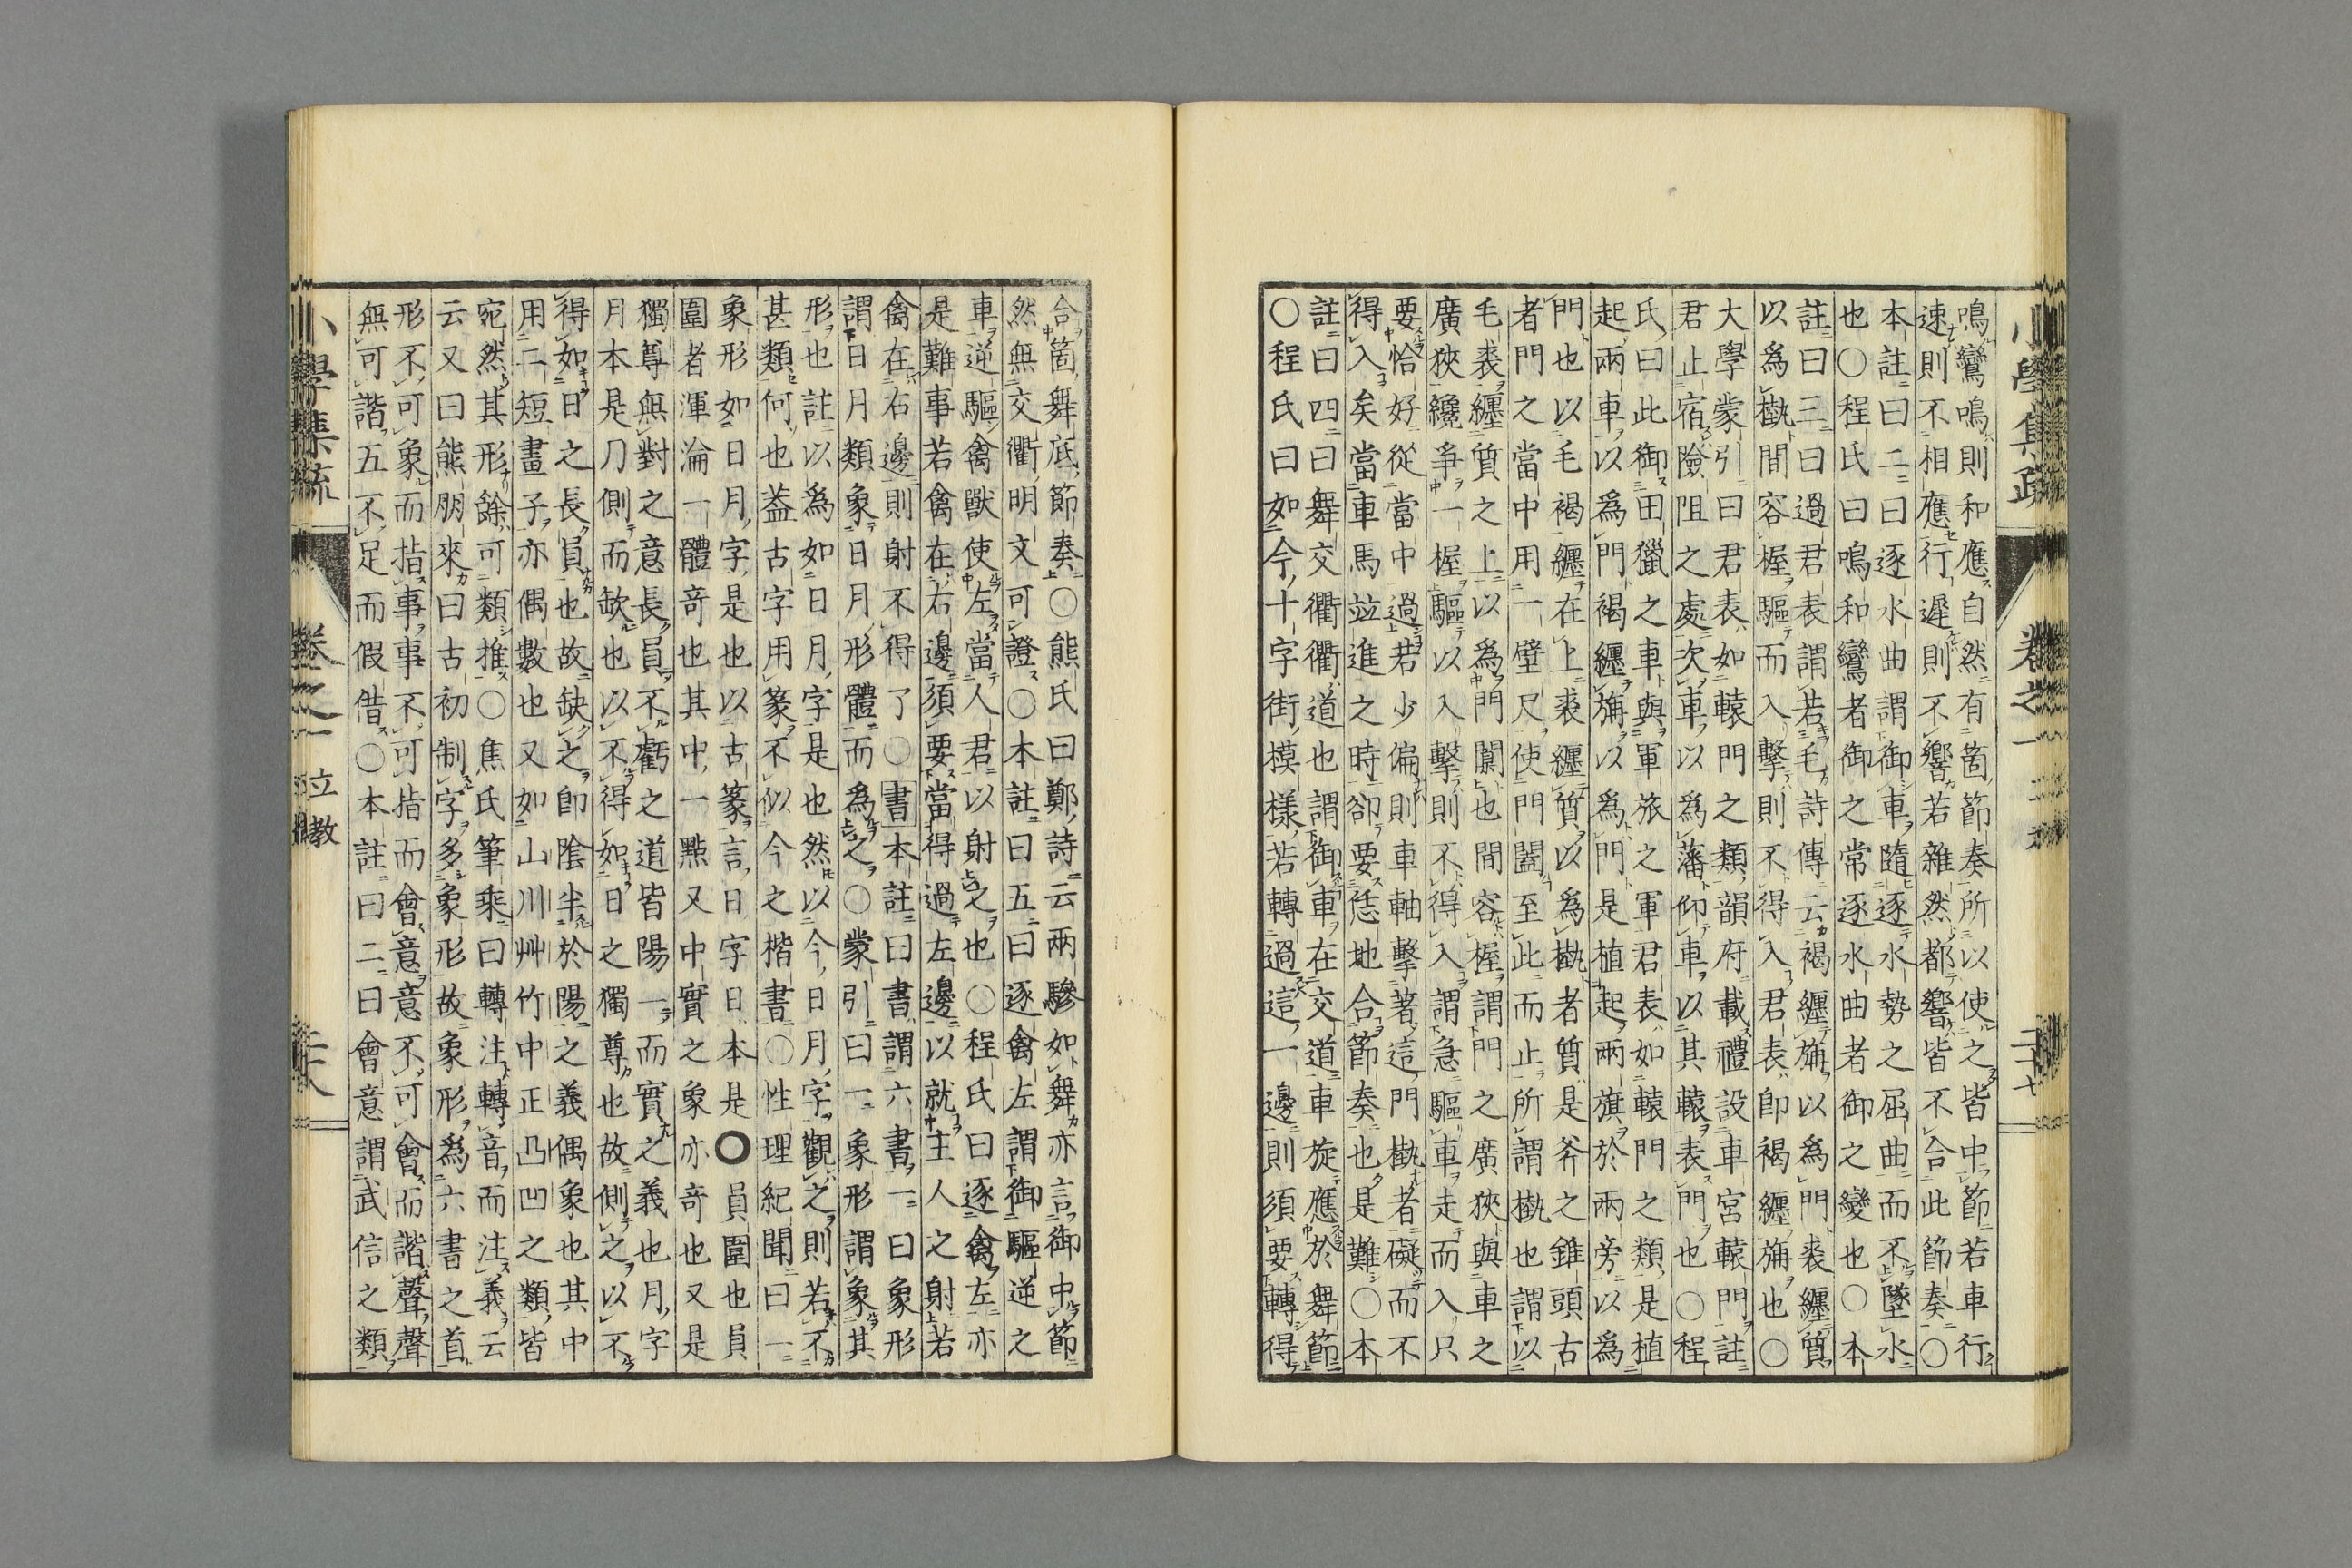 鳴鸞鳴則和應自然有箇節奏所以使之皆中節若車行
速則不相應行遲則不響若雜然都響皆不合此節奏○
本註曰二曰逐水曲謂御車隨逐水勢之屈曲而不墜水
也○程氏曰鳴和鸞者御之常逐水曲者御之變也○本
註曰三曰過君表謂若毛詩傳云褐纏旃以為門裘纏質
以為槸間容握驅而入擊則不得入君表即褐纏旃也○
大學蒙引曰君表如轅門之類韻府載禮設車宮轅門註
君止宿險阻之處次車以為藩仰車以其轅表門也○程
氏曰此御田獵之車與軍旅之軍君表如轅門之類是植
起兩車以為門褐纏旃以為門是植起兩旗於兩旁以為
門也以毛褐纏在上裘纏質以為槸者質是斧之錐頭古
者門之當中用一壁尺使門闔至此而止所謂槸也謂以
毛裘纏質之上以為門闑也間容握謂門之廣狹與車之
廣狹纔爭一握驅以入擊則不得入謂急驅車走而入只
要恰好從當中過若少偏則車軸擊著這門槸者礙而不
得入矣當車馬竝進之時卻要恁地合節奏也是難○本
註曰四曰舞交衢衢道也謂御車在交道車旋應於舞節
○程氏曰如今十字街模樣若轉過這一邊則須要轉得
小學集疏
卷之一
二十七
合箇舞底節奏○熊氏曰鄭詩云兩驂如舞亦言御中節
然無交衢明文可證○本註曰五曰逐禽左謂御驅逆之
車逆驅禽獸使左當人君以射之也○程氏曰逐禽左亦
是難事若禽在右邊須要當得過左邊以就主人之射若
禽在右邊則射不得了○書本註曰書謂六書一曰象形
謂日月類象日月形體而為之○蒙引曰一象形謂象其
形也註以為如日月字是也然以今日月字觀之則若不
甚類何也蓋古字用篆不似今之楷書○性理紀聞曰一
象形如日月字是也以古篆言日字日本是○員圍也員
圍者渾淪一體奇也其中一點又中實之象亦奇也又是
獨尊無對之意長員不虧之道皆陽一而實之義也月字
月本是刀側而缺也以不得如日之獨尊也故側之以不
得如日之長員也故缺之即陰半於陽之義偶象也其中
用二短畫子亦偶數也又如山川艸竹中正凸凹之類皆
宛然其形餘可類推○焦氏筆乘曰轉注轉音而注義云
云又曰熊朋來曰古初制字多象形故象形為六書之首
形不可象而指事事不可指而會意意不可會而諧聲聲
無可諧五不足而假借○本註曰二曰會意謂武信之類
小學集疏
卷之一
立教
二十八